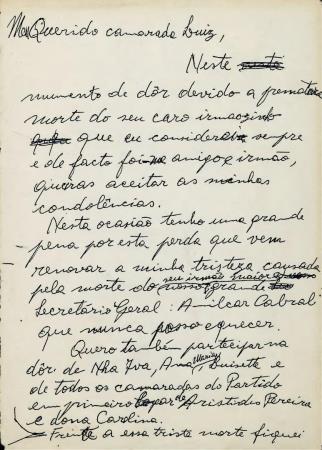 Meu Querido camarada Luiz,
Neste
momento de dôr devido a prematura
morte do seu caro irmão
que eu considerei sempre
e de facto foi amigo e irmão,
queiras aceitar as minhas
condolências.
Nesta ocasião tenho uma grande
pena por esta perda que vem
renovar a minha tristeza causada
pela morte do seu irmão maior e
Secretário Geral: Amilcar Cabral
que nunca posso esquecer.
Quero também participar na
dôr de Nha Iva, Ana Maria, Luisette e
de todos os camaradas do Partido
em primeiro lugar de Aristides Pereira
e dona Carlina.
Frente a essa triste morte fiquei